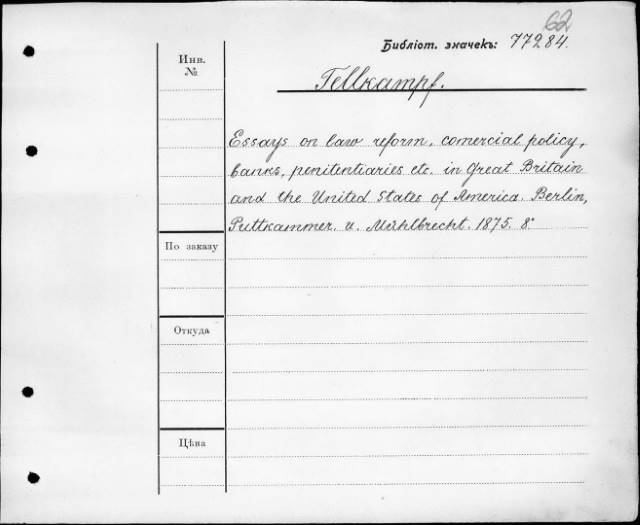 62
Библіот. значекъ: 77284.
Инв.
№
Tellkampf.
Essays on law reform, comercial policy,
banks, penitentiaries etc. in Great Britain
and the United States of America. Berlin,
Puttkammer. u. Mühlbrecht. 1875. 8°
По заказу
Откуда
Цѣна